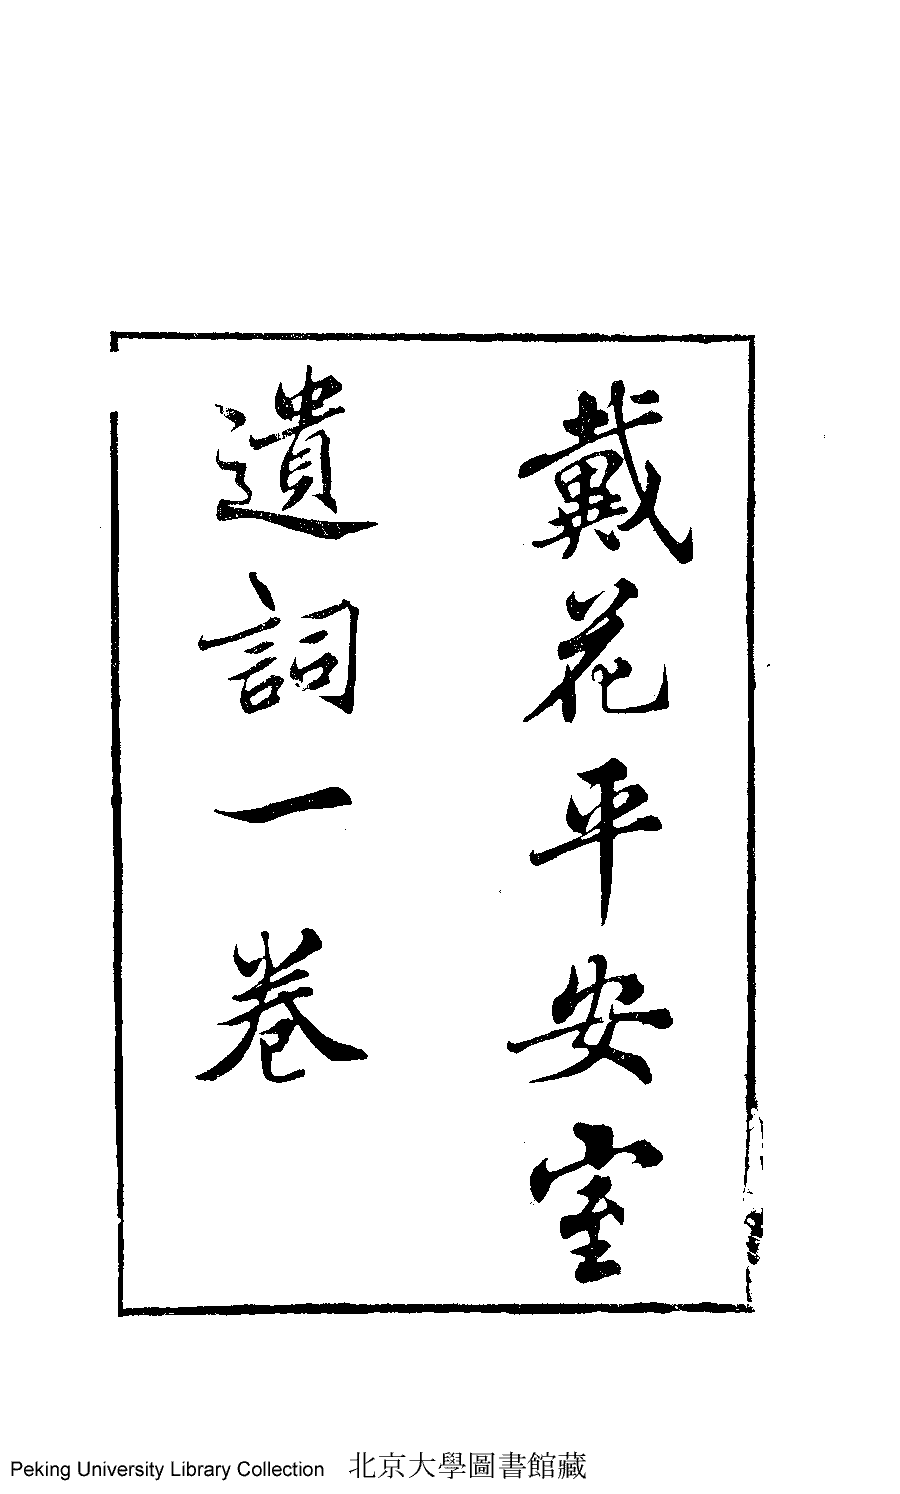 戴花平安室
遺詞一卷
Peking University Library Collection 北京大學圖書館藏